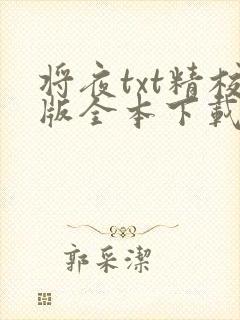 将夜txt精校
版全本下载
郭采潔